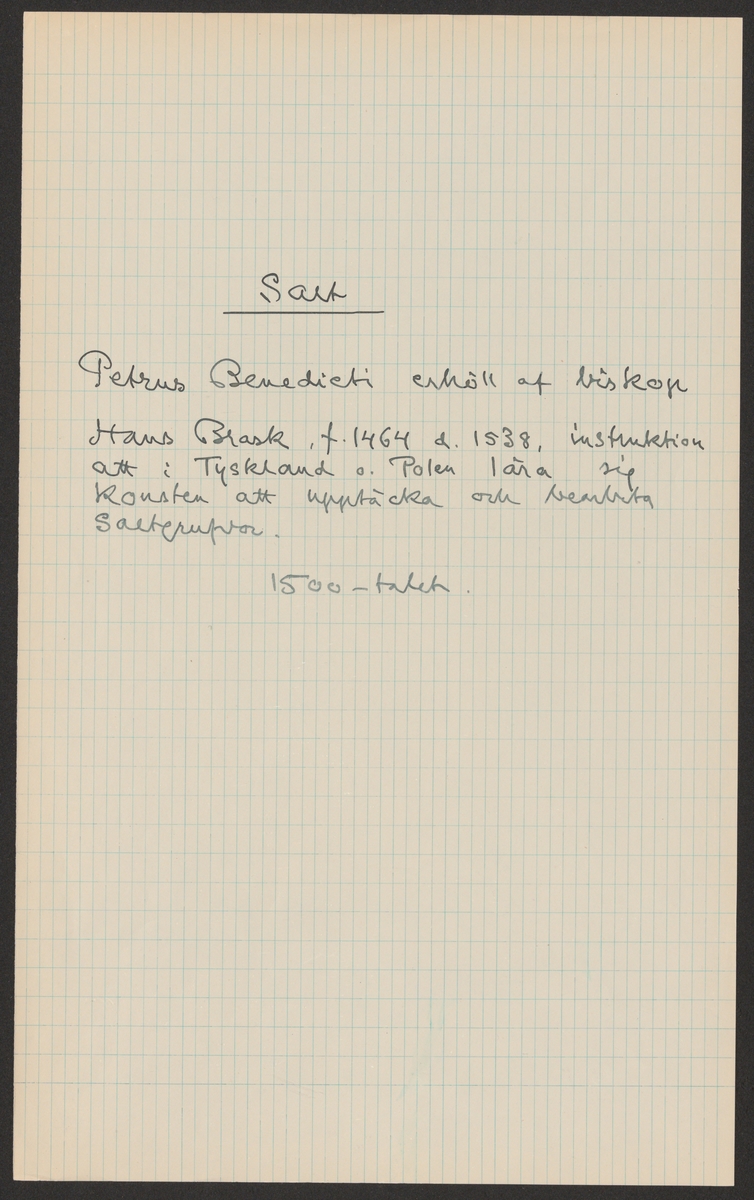 Salt
Petrus Benedicti erhöll af biskop
Hans Brask, f. 1464 d. 1538, instruktion
att i Tyskland o. Polen lära sig
konsten att upptäcka och bearbeta
Saltgrufvor.
1500-talet.